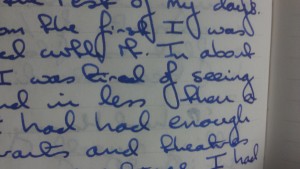 the rest of my days.
om the first I was
ed with it. In about
I was tired of seeing
nd in less than a
I had had enough
rants and theatres
I had